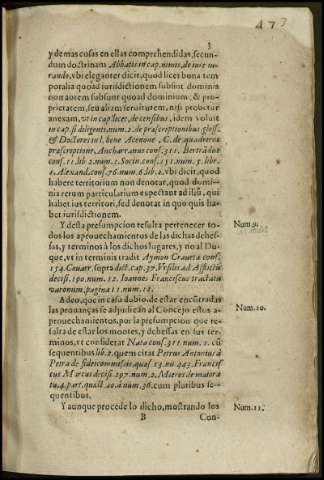 3
y demas cosas en ellas comprehendidas, secun-
dum doctrinam Abbatis in cap. nimis, de iure iu-
rando, vbi eleganter dicit, quod licet bona tem
poralia quoad iurisdictionem subsint dominis
non autem subsunt quoad dominium, & pro-
prietatem, seu alienseruiturem, nisi probetur
anexam, vt in cap. licet, de censibus, idem voluit
in cap. si diligenti, num. 2. de præscriptionibus gloss.
& Doctores in l. bene Acenone. C. de quadriera
præscriptione, Ancharanus cons. 311. Bertrādus
cons. 11. lib 2. num. 1. Socin. cons. 151. num. 5. libr.
1. Alexand. cons. 76. num. 6. lib. 2. vbi dicit, quod
habere territorium non denotat, quod domi-
nia rerum particularium expectant ad illū, qui
habet ius territorij, sed denotat in quo quis ha-
bet iurisdictionem.
Y desta presumpcion resulta pertenecer to-
dos los aprouechamientos de las dichas dehes-
sas, y terminos à los dichos lugares, y no al Du-
que, vt in terminis tradit Aymon Craueta cons.
154. Couarr. supra dict. cap. 37. Vrsilis ad Afflictū
decisi. 190. num. 12. Ioanes Franciscus tractatu
varonum, pagina 11. num. 12.
Adeo, que in casu dubio, de estar encōtradas
las prouanças se adjudicā al Concejo estos a-
prouechamientos, por la presumpcion que re-
sulta de estar los montes, y dehessas en sus ter-
minos, vt considerat Nata cons. 311. num. 1. cū
sequentibus lib. 2. quem citas Petrus Antonius à
Petra de fideicommissis, quæst. 13. nu. 443. Francis
cus Marcus decisi. 297. num. 2. Mieres de maiora
tu, 4. part. quæst. 20. à num. 36. cum pluribus se-
quentibus.
Y aunque procede lo dicho, mostrando los
B Con-
Num. 9.
Num. 10.
Num. 11.